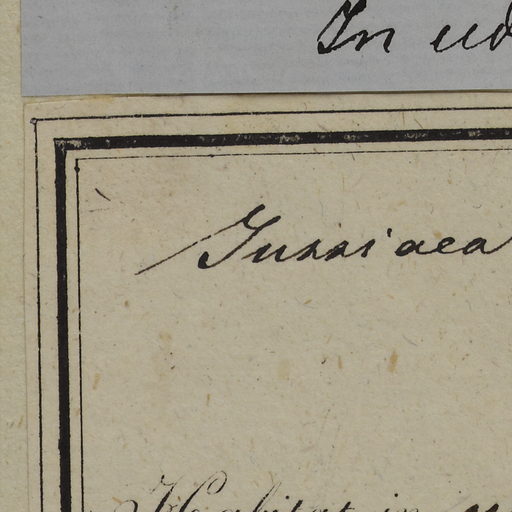 In ud
Jussiaea
Habitat in